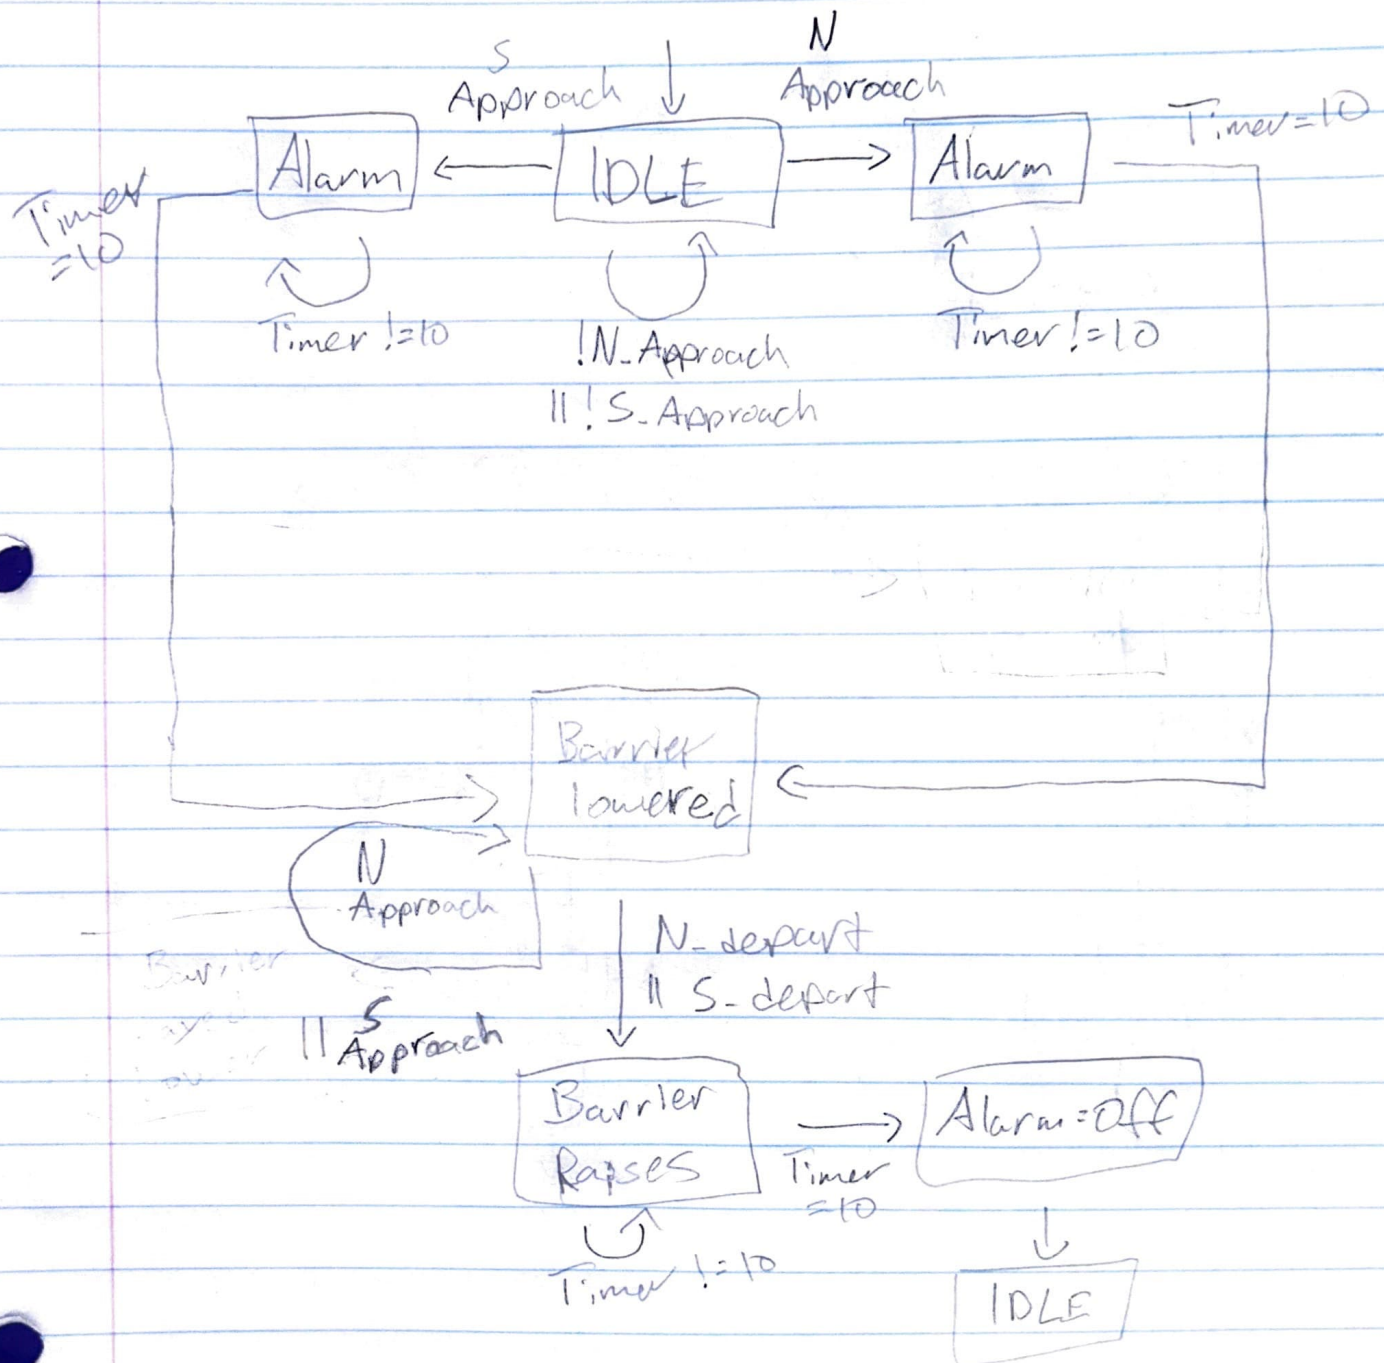 S
Approach
N
Approach
Timer=10
Alarm
IDLE
Alarm
Timer
=10
Timer !=10
!N_Approach
|| !S_Approach
Timer !=10
Barrier
lowered
N
Approach
|| S
Approach
N_depart
|| S_depart
Barrier
Barrier
Raises
Timer
=10
Alarm=Off
Timer !=10
IDLE